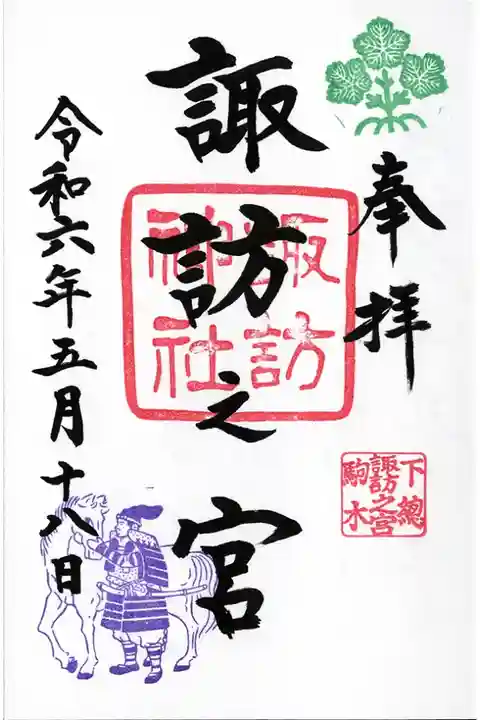 奉拝
諏訪之宮
諏訪
神社
下總
諏訪之宮
駒木
令和六年五月十八日